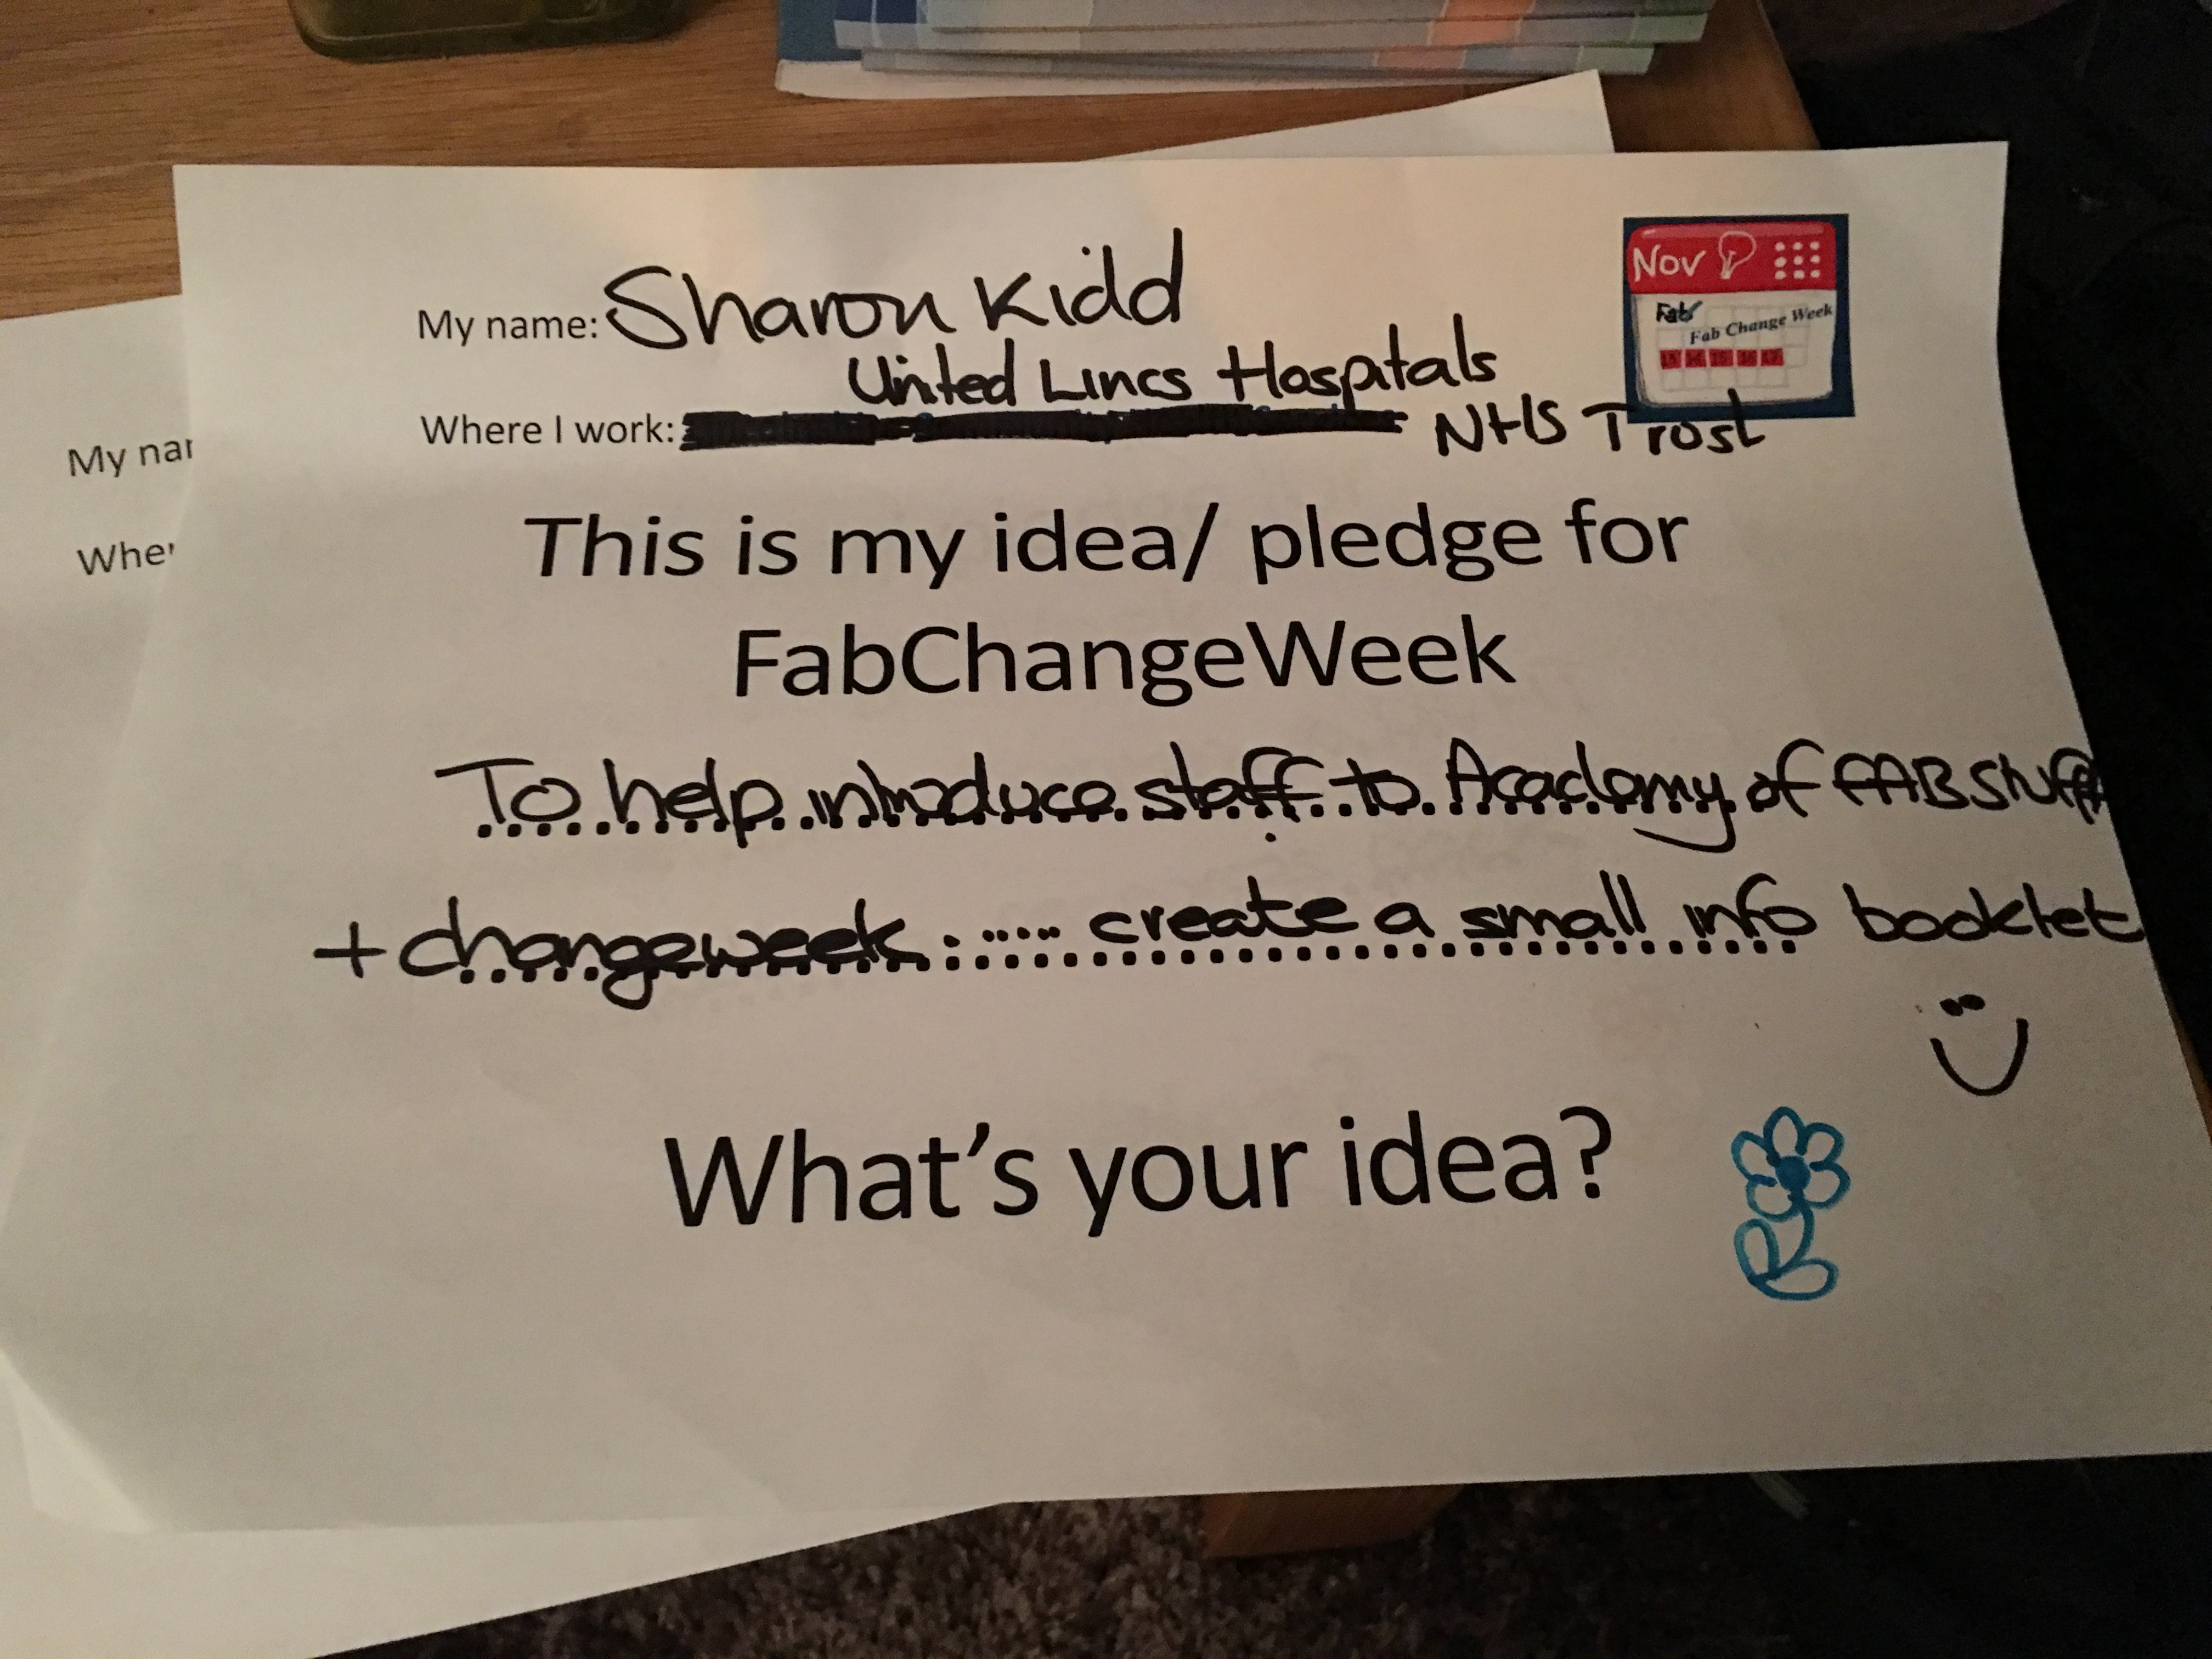 My name: Sharon Kidd
United Lincs Hospitals
Where I work: NHS Trust
Nov
Fab
Fab Change Week
This is my idea/ pledge for
FabChangeWeek
To help introduce staff to Academy of FAB Stuff
+ changeweek : ..... create a small info booklet
What's your idea?
My nar
Wher